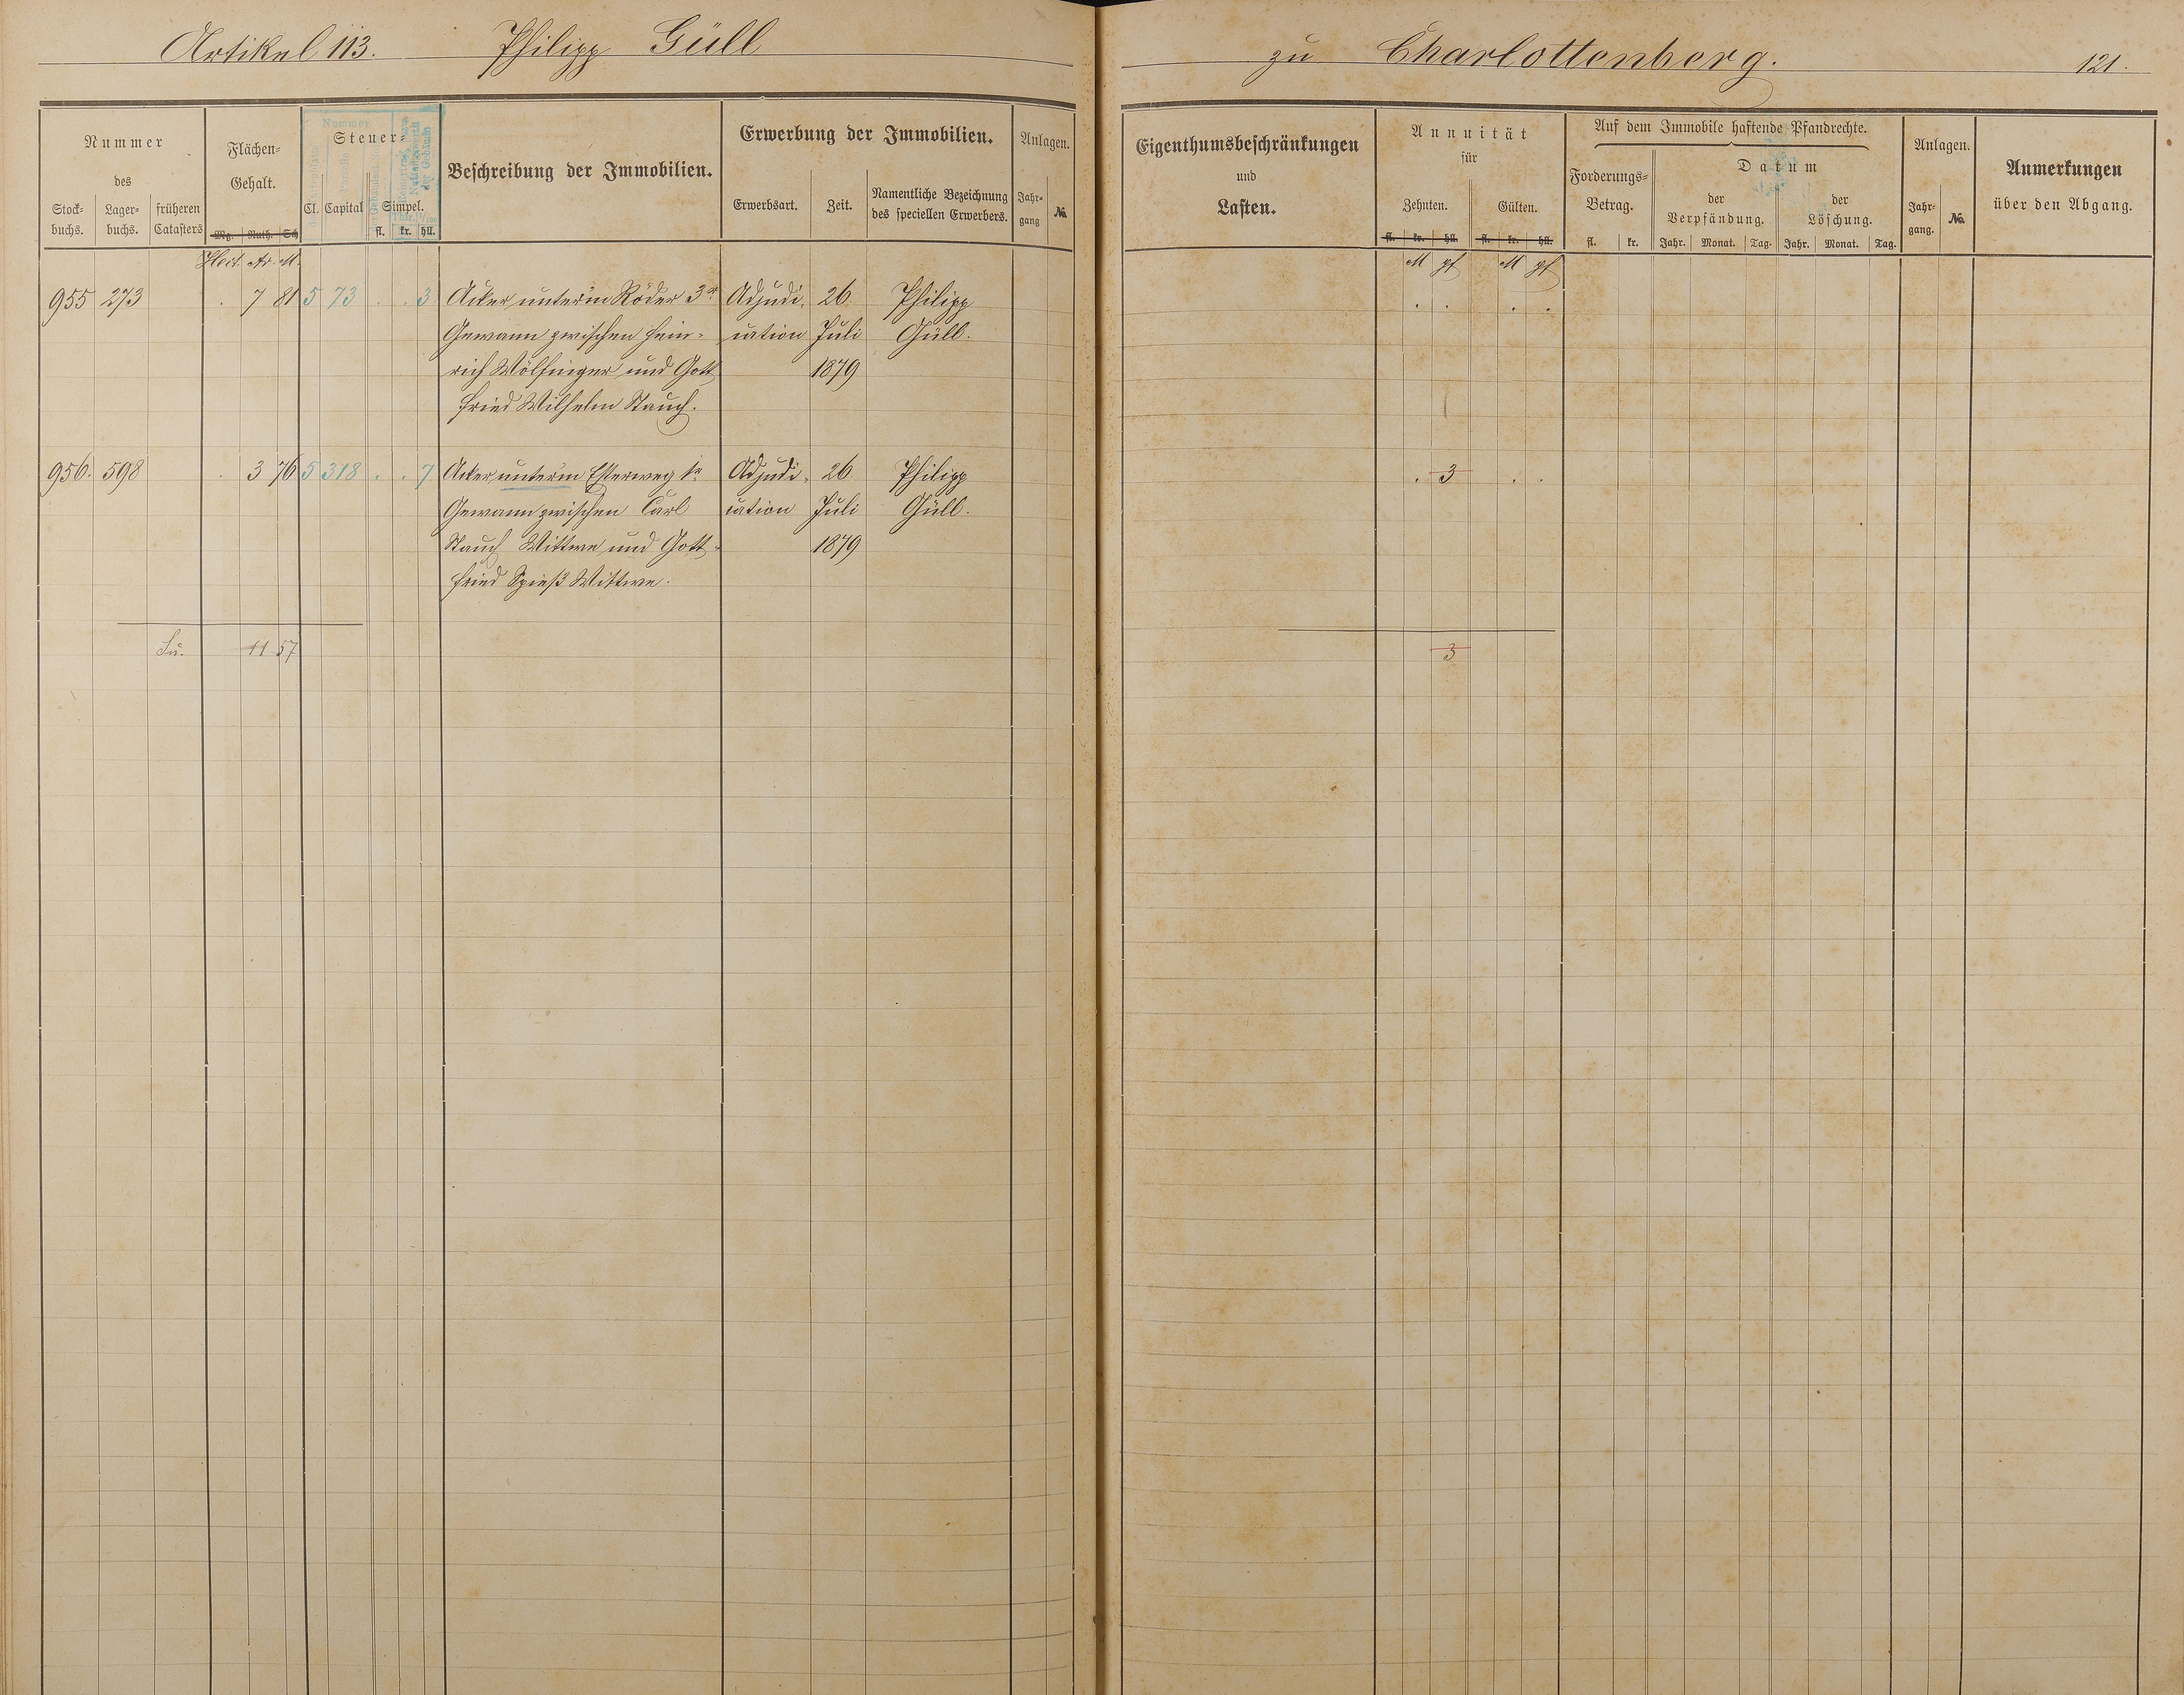 Artikel 113. Philipp Güll
zu Charlottenberg. 121.
Nummer
des
Stock-
buchs.
Lager-
buchs.
früheren
Catasters
Flächen-
Gehalt.
Mg. Ruth. Sch
Hect. Ar. M.
Nummer
Steuer-
Cl. Capital Simpel.
fl. kr. hll.
Beschreibung der Immobilien.
Erwerbung der Immobilien.
Erwerbsart. Zeit.
Namentliche Bezeichnung
des speciellen Erwerbers.
Anlagen.
Jahr-
gang
No.
955 273 . 7 81 5 73 . . 3 Acker unterm Röder 3r Adjudi- 26. Philipp
Gewann zwischen Hein- cation Juli Güll.
rich Wölfinger und Gott 1879
fried Wilhelm Stauch.
956. 598 . 3 76 5 318 . . 7 Acker unterm Esterweg 1r Adjudi- 26 Philipp
Gewann zwischen Carl cation Juli Güll.
Stauch Wittwe und Gott- 1879
fried Spieß Wittwe.
Su. 11 57
Eigenthumsbeschränkungen
und
Lasten.
Annuität
für
Zehnten. Gülten.
fl. kr. hll. fl. kr. hll.
M pf M pf
Auf dem Immobile haftende Pfandrechte.
Forderungs-
Betrag.
fl. kr.
Datum
der
Verpfändung.
der
Löschung.
Jahr. Monat. Tag. Jahr. Monat. Tag.
Anlagen.
Jahr-
gang.
No.
Anmerkungen
über den Abgang.
. . . .
. 3 . .
3